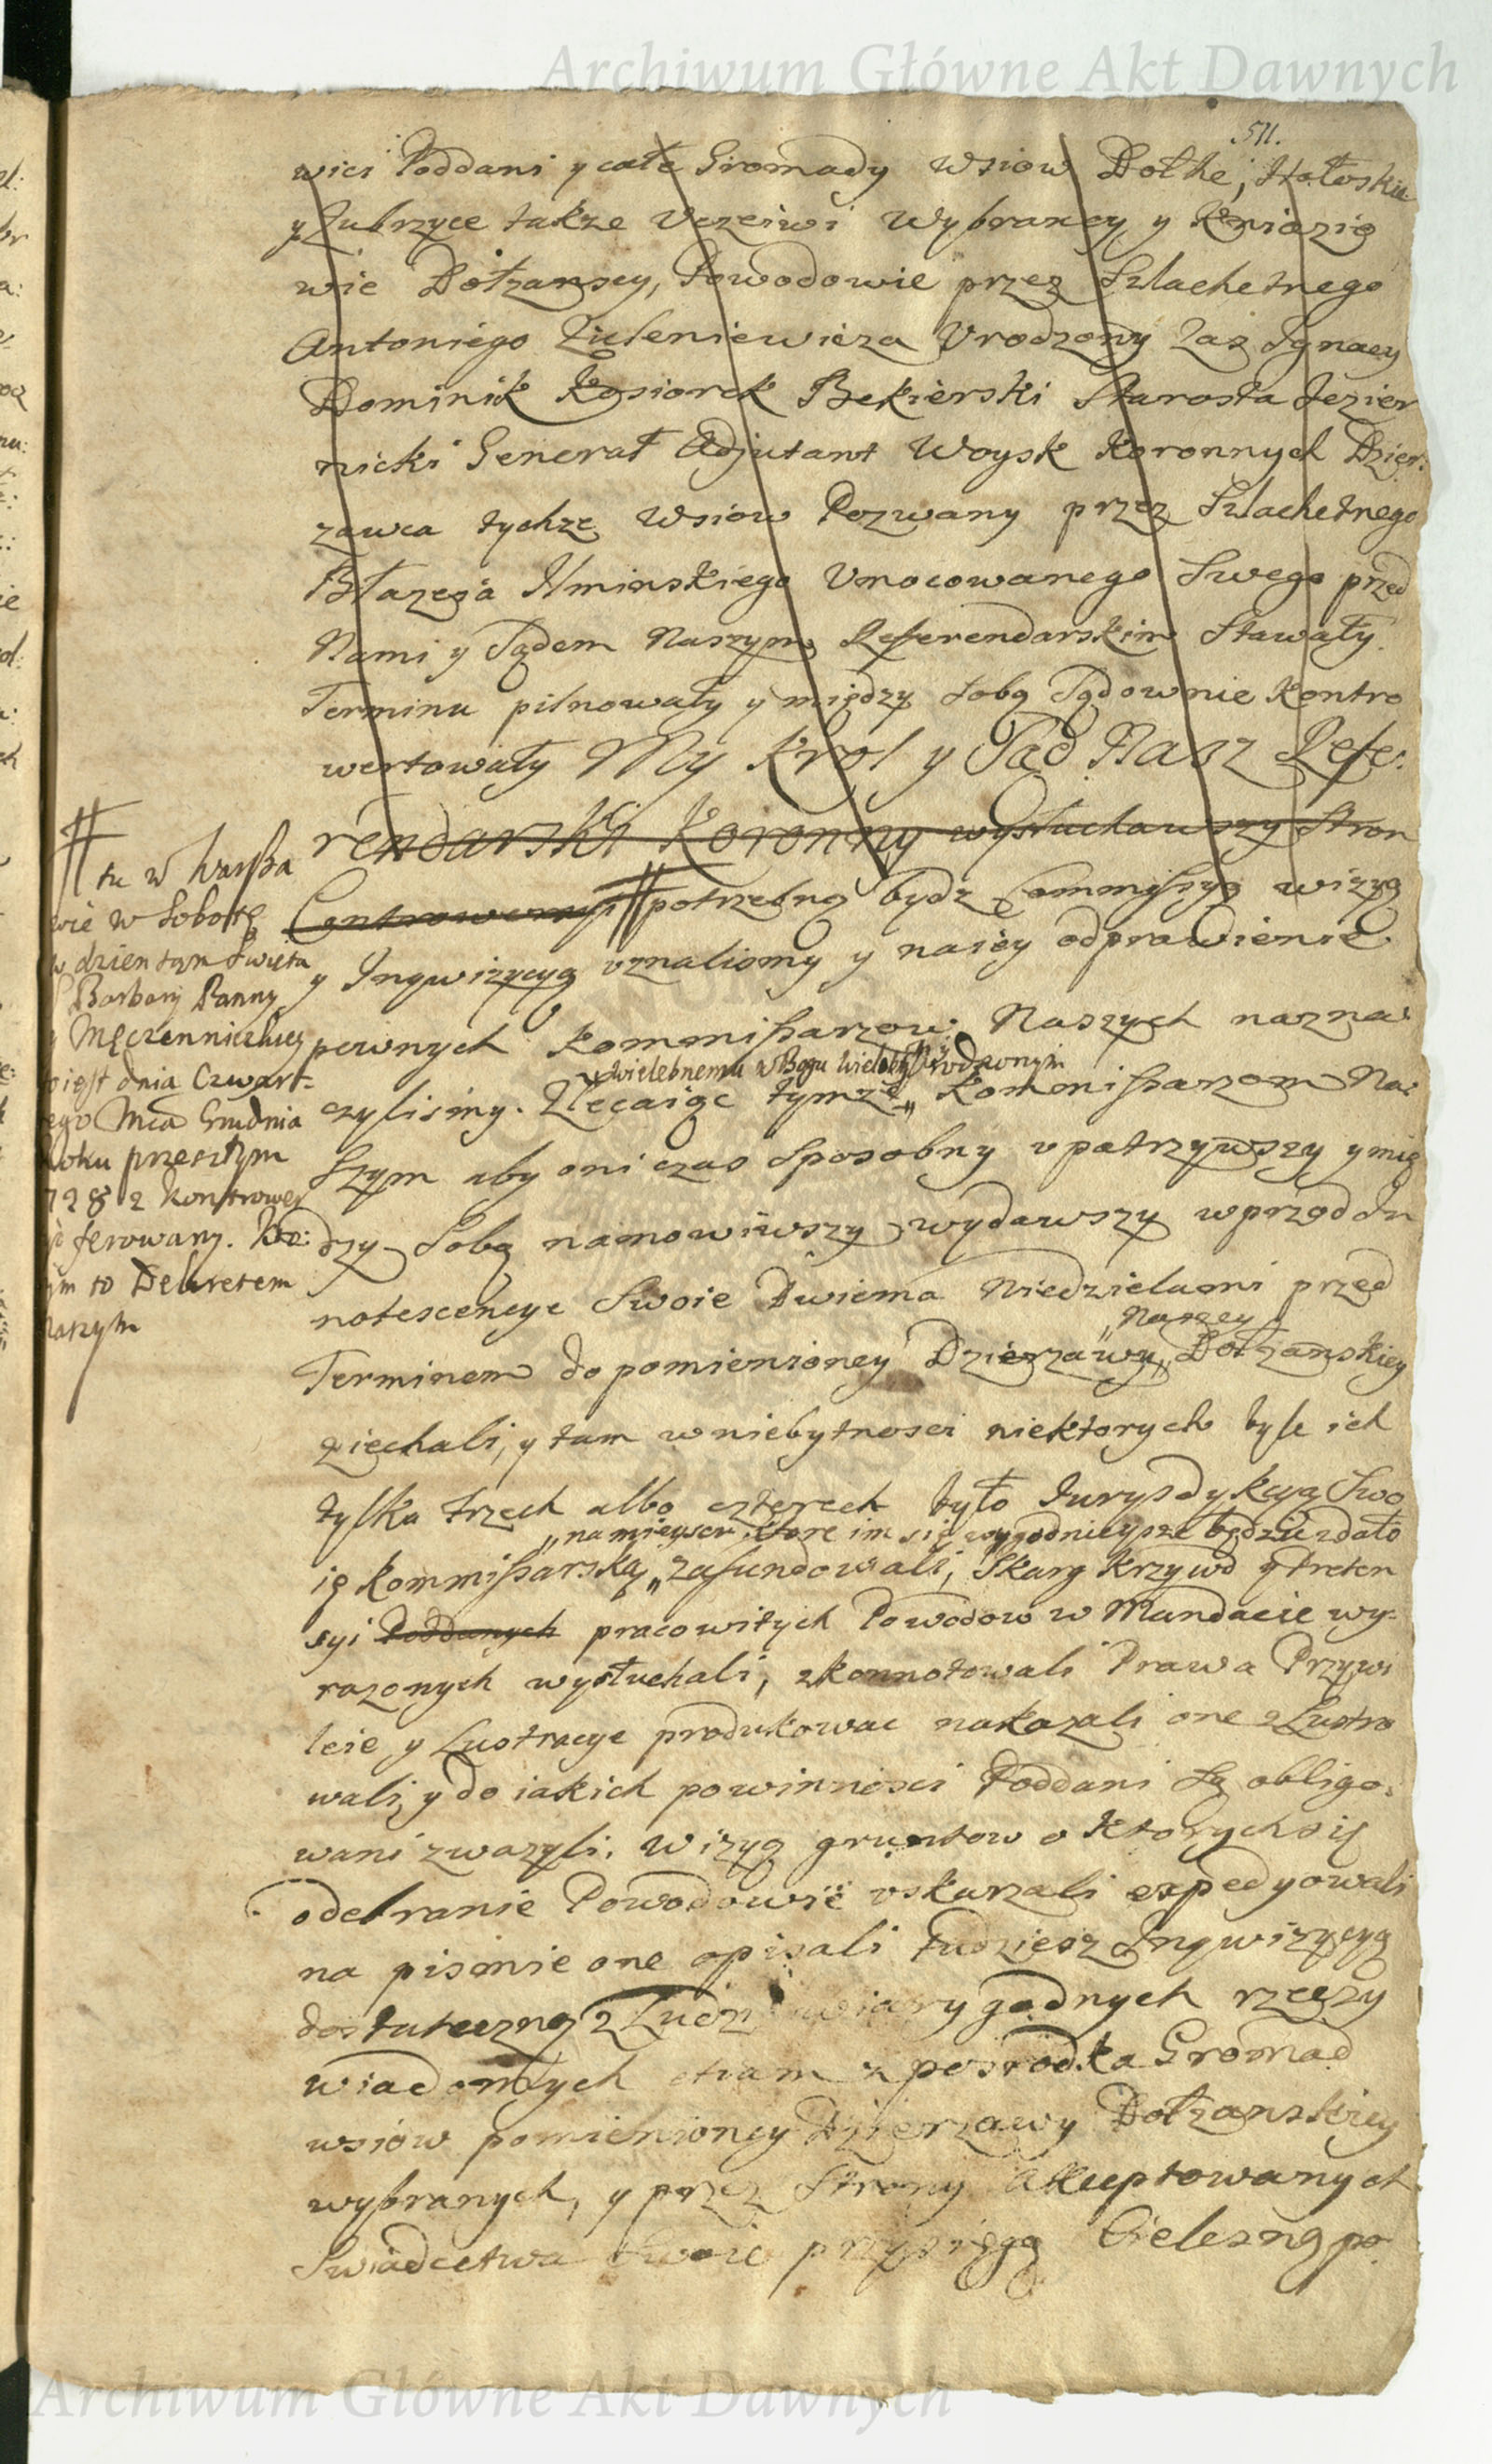 Archiwum Główne Akt Dawnych
511.
wici Poddani y całe Gromady wsiow Dołhe, Hołoskie
y Zubrzyce takze Uczciwi Wybrancy y Kniazio
wie Dołzanscy, Powodowie przez Szlachetnego
Antoniego Zieleniewicza Urodzony zas Ignacy
Dominik Kosiorek Bekierski Starosta Jezier
nicki Generał Adjutant Woysk Koronnych Dzier:
zawca tychze wsiow Pozwany przez Szlachetnego
Błazeja Umocowanego Swego przed
Nami y Sądem Naszym Referendarskim Stawały
Terminu pilnowały y między sobą Sądownie Kontro
wertowały My Krol y Sąd Nasz Refe:
rendarski Koronny wysłuchawszy Stron
Controwersyi # potrzebną bydz Commissyą wizyą
y Inqwizycyą uznalismy y na iey odprawienie
pewnych Kommissarzow Naszych nazna:
Wielebnemu w Bogu Wielebnym Urodzonym
czylismy. Zlecaiąc tymze „ Kommissarzom Na:
szym aby oni czas sposobny upatrzywszy y mię
dzy Sobą namowiwszy, wydawszy wprzod In
notescencye Swoie Dwiema Niedzielami przed
„Naszey
Terminem do pomienioney Dzierzawy „ Dołzanskiey
ziechali, y tam w niebytnosci niektorych byle ich
tylko trzech albo czterech było Jurysdykcyą Swo
„na mieyscu ktore im się wygodnieysze będzie zdało
ię Kommissarską „ zafundowali, Skarg Krzywd y Preten
syi Poddanych pracowitych Powodow w Mandacie wy-
razonych wysłuchali, zkonnotowali Prawa Przywi
leie y Lustracye produkowac nakazali one zLustro
wali, y do iakich powinnosci Poddani Są obligo:
wani zwazyli. Wizyą gruntow o ktorych się
odebranie Powodowie uskarzali expedyowali
na pismie one opisali tudziesz Inqwizycyą
dostateczną z Ludzi wiary godnych rzeczy
wiadomych etiam z posrodka Gromad
wsiow pomienioney Dzierzawy Dołzanskiey
wybranych, y przez Strony akceptowanych
Swiadectwa Swoie przysięgą Cielesną po:
# tu w Warsza
wie w Sobotę
w dzien sam Swięta
S Barbary Panny
y Męczenniczkiey
iest dnia Czwart=
ego Mca Grudnia
Roku przeszłym
1728 z Kontrower
ferowany. Kto:
ym to Dekretem
Naszym
Archiwum Główne Akt Dawnych